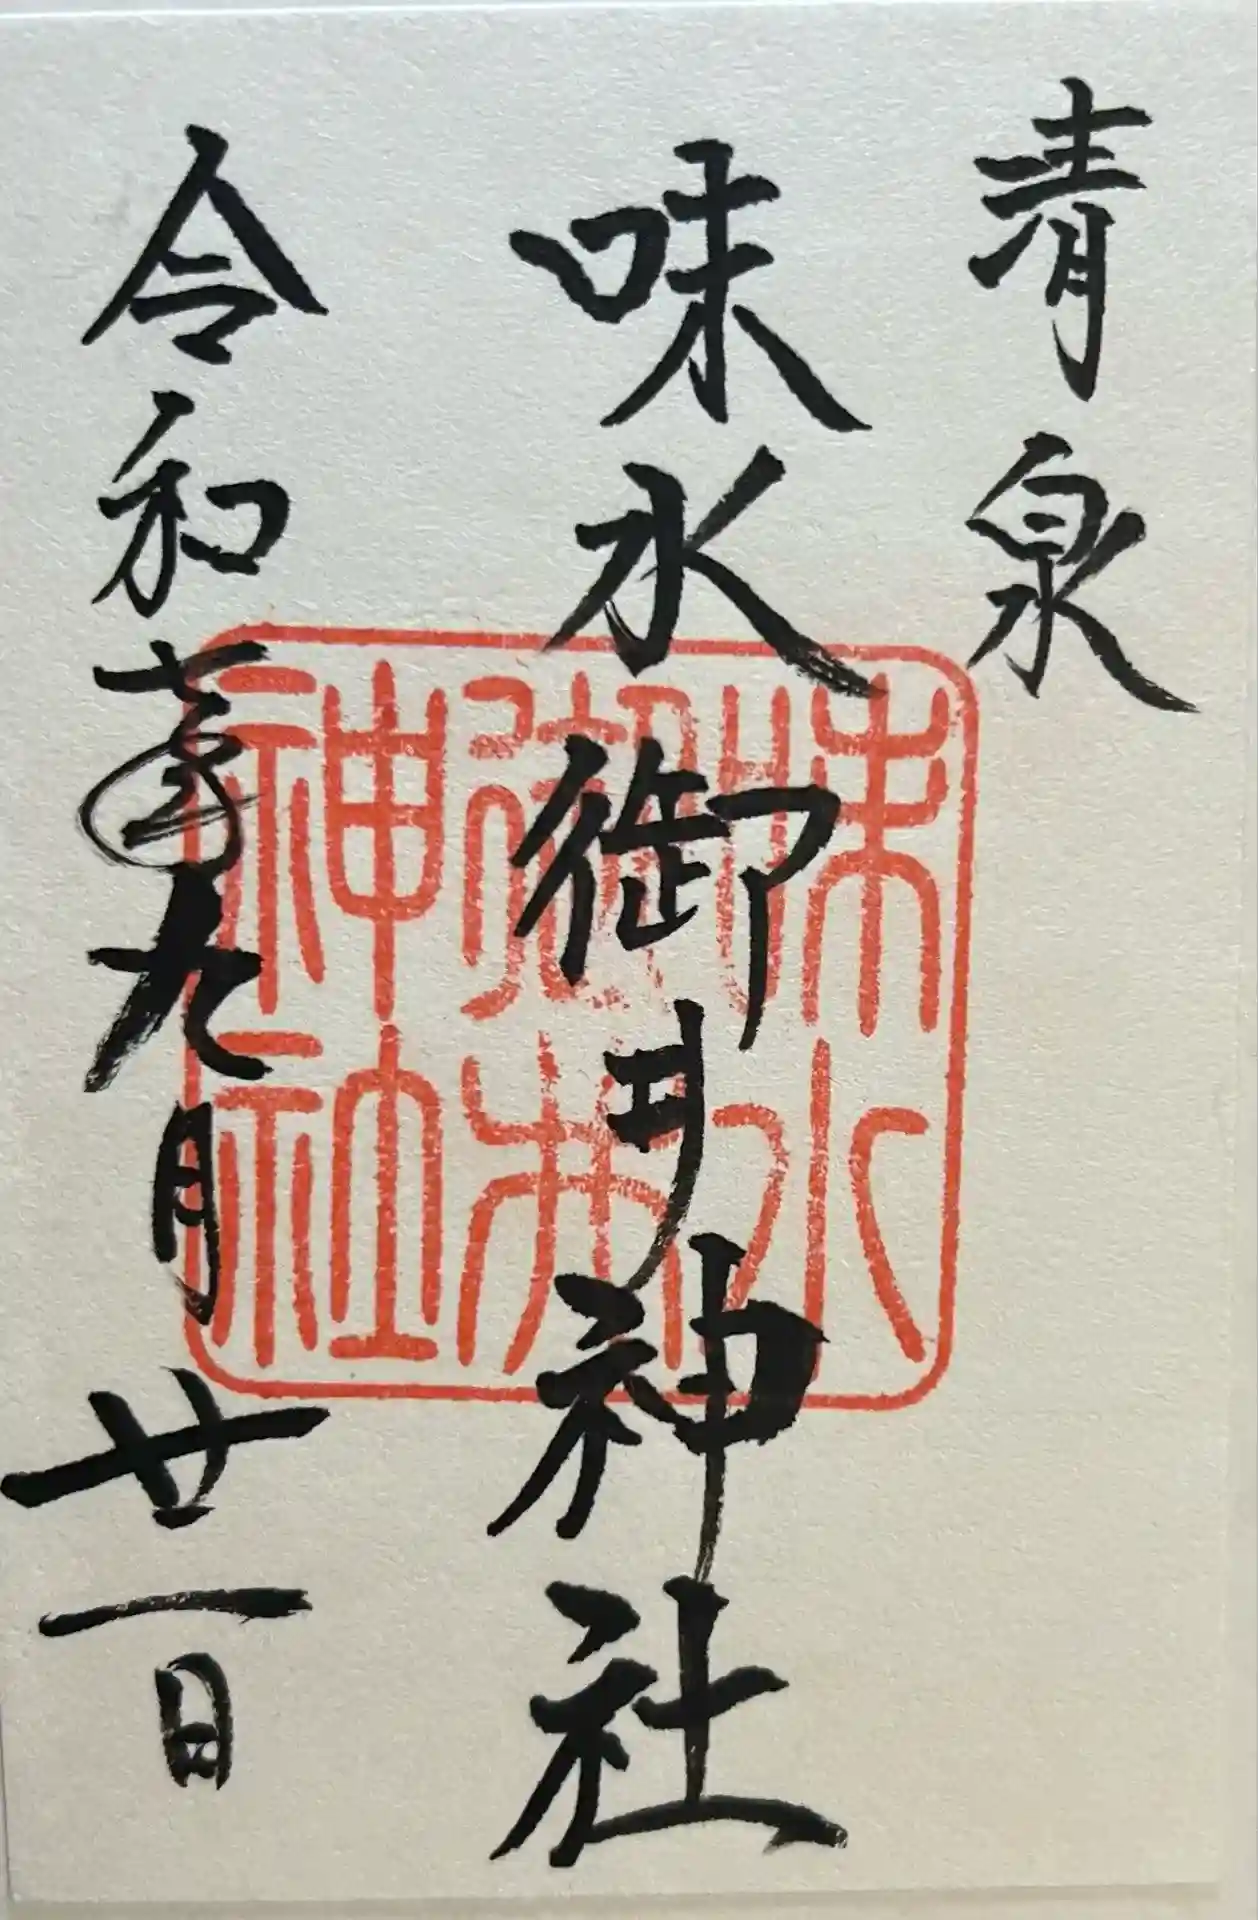 青泉
味水御井神社
令和壱年九月廿一日
味水御井神社